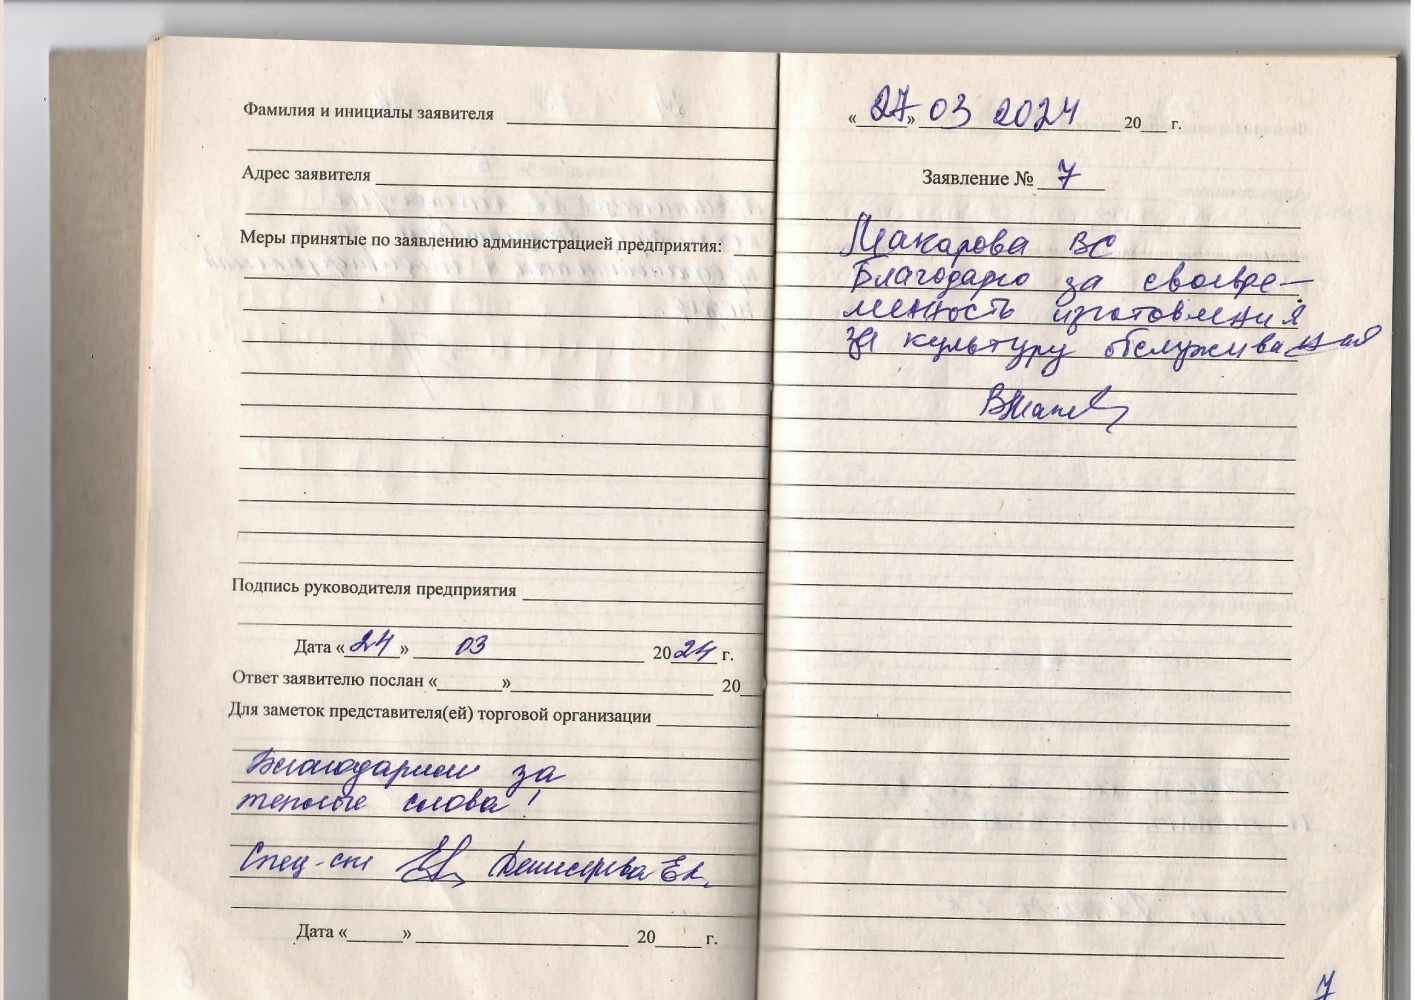 Фамилия и инициалы заявителя
Адрес заявителя
Меры принятые по заявлению администрацией предприятия:
Подпись руководителя предприятия
Дата «24» 03 2024 г.
Ответ заявителю послан « » 20
Для заметок представителя(ей) торговой организации
Благодарим за
теплые слова!
Спец-ст
Дата « » 20 г.
«27» 03 2024 20 г.
Заявление № 7
Макарова ВС
Благодарю за своевре-
менность изготовления
за культуру обслуживания
7